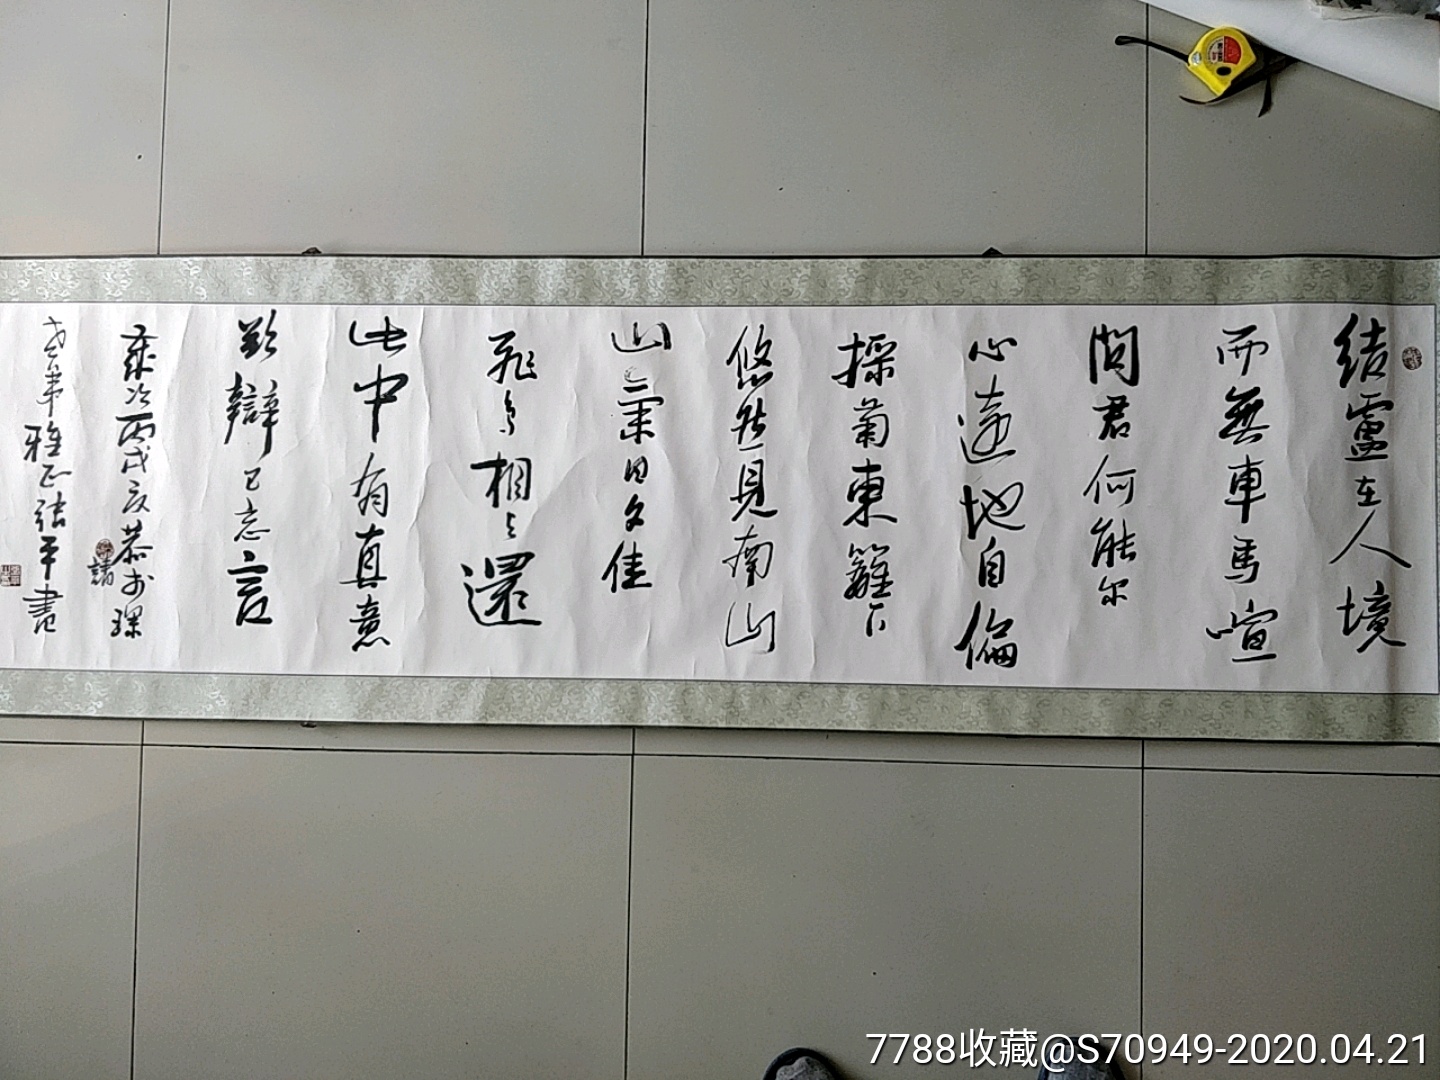 结廬在人境
而無車馬喧
問君何能尔
心遠地自偏
採菊東籬下
悠然見南山
山氣日夕佳
飛鳥相与還
此中有真意
欲辯已忘言
歲次丙戌
請
雅正 平書
7788收藏@S70949-2020.04.21